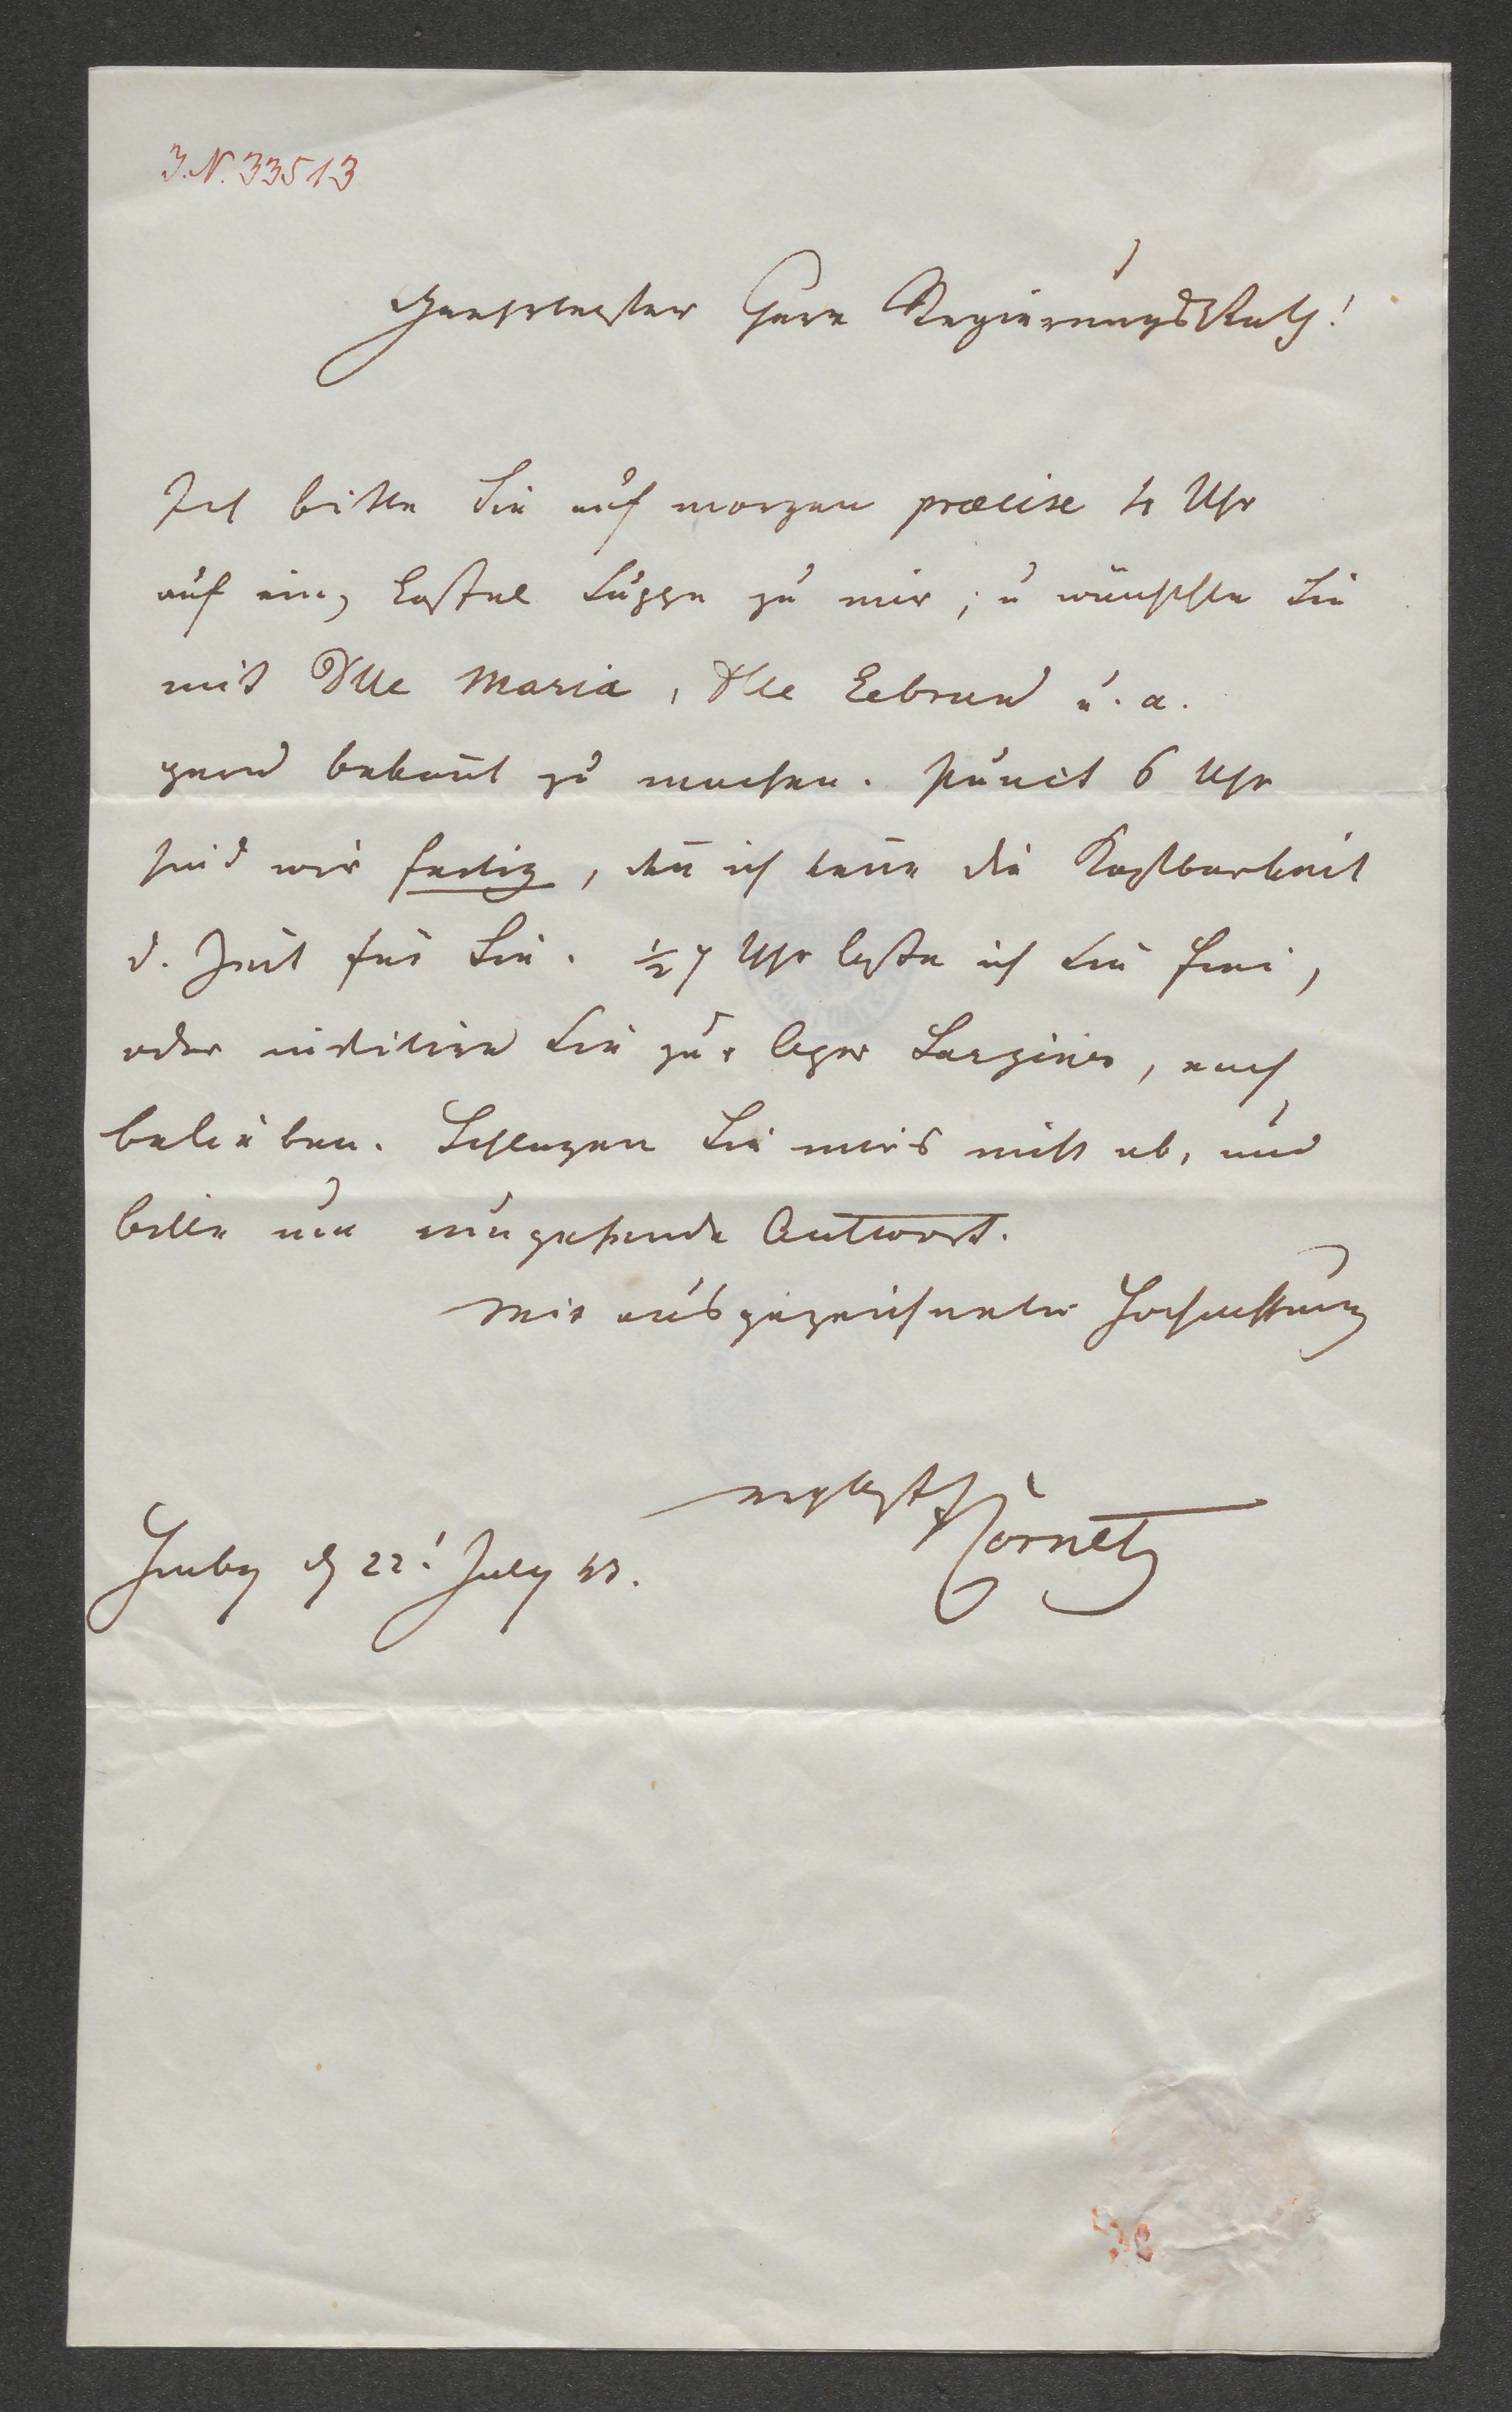 I.N. 33513
Geehrtester Herr Regierungsrath!
Ich bitte Sie auf morgen præcise 4 Uhr
auf einen Löffel Suppe zu mir; u wünschte Sie
mit Dlle Maria, Dlle Lebrun u. a.
gern bekañt zu machen. Punct 6 Uhr
sind wir fertig, deñ ich keñe die Kostbarkeit
d. Zeit für Sie. ½7 Uhr lasse ich Sie frei,
oder invitire Sie zur Oper Sargines, nach
belieben. Schlagen Sie mirs nicht ab, und
bitte um umgehende Antwort.
Mit ausgezeichneter Hochachtung
ergebenst
Cornet
Hambg d 22! July 43.